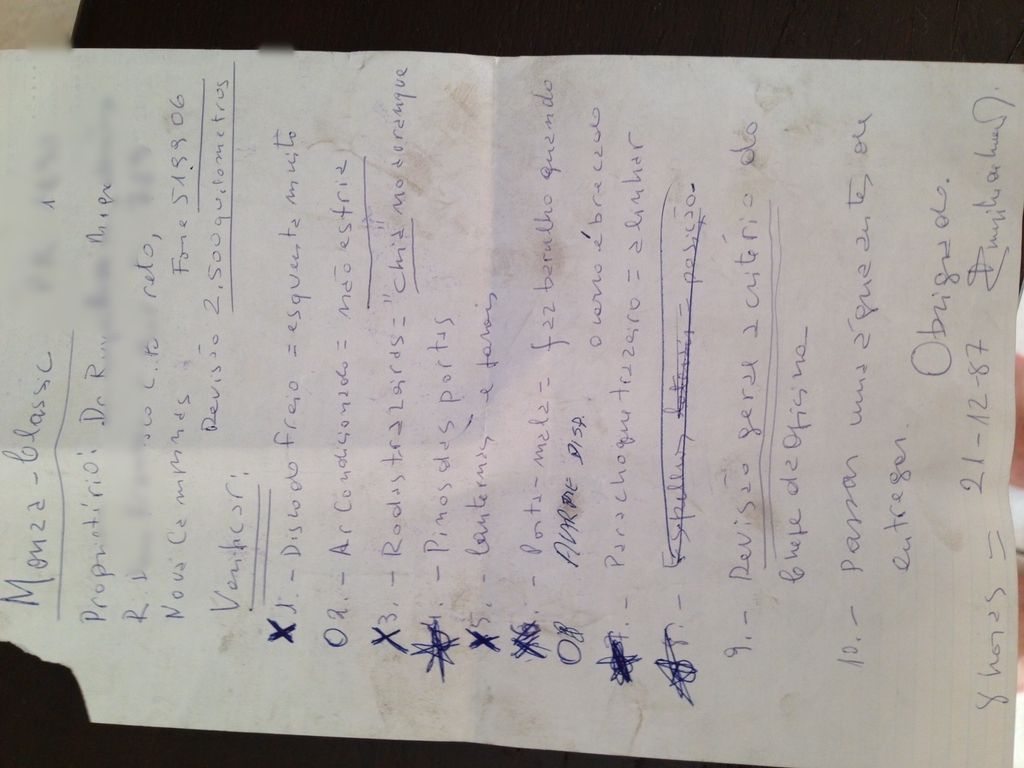 Monza - Classic
Propietário: Dr R
R. reto,
Novo Campinas Fone 519906
Revisão 2.500 quilometros
Verificar:
X 1. - Disco do freio = esquenta muito
O 2. - Ar Condicionado = não esfria
X 3. - Rodas trazeiras = "chia" no aranque
4. - Pinos das portas
X 5. - lanternas e farois
6. - Porta-mala = faz barulho quando
OR ALARME DISP. o carro é brecado
7. - Parachoque trazeiro = alinhar
8. - Espelho = posição.
9. - Revisão geral a critério do
Chefe da Oficina
10. - Passar uma aguente, de
entregar.
Obrigado.
8 horas = 21-12-87